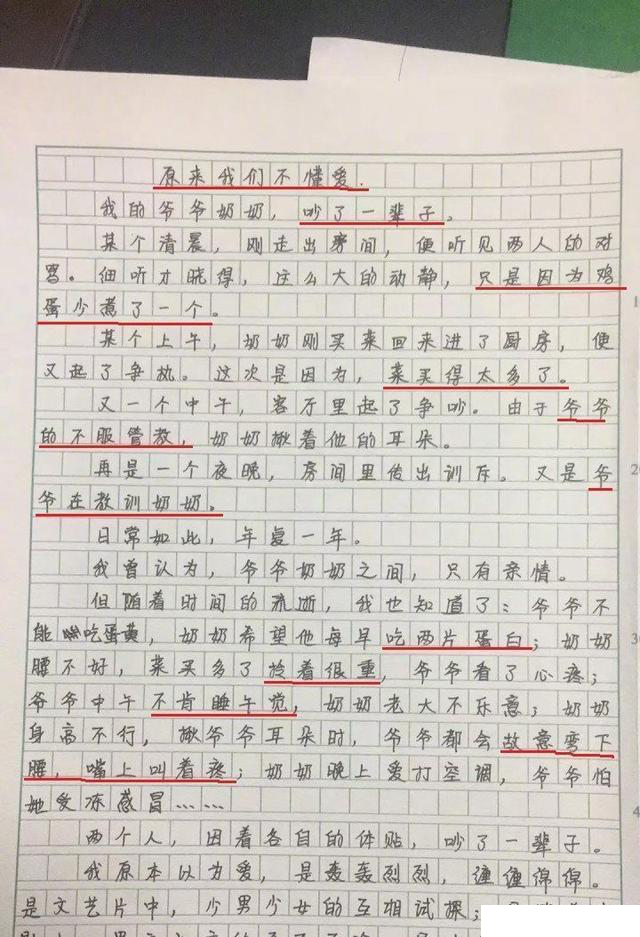 原来我们不懂爱.
我的爷爷奶奶，吵了一辈子。
某个清晨，刚走出房间，便听见两人的对
骂。细听才晓得，这么大的动静，只是因为鸡
蛋少煮了一个。
某个上午，奶奶刚买菜回来进了厨房，便
又起了争执。这次是因为，菜买得太多了。
又一个中午，客厅里起了争吵。由于爷爷
的不服管教，奶奶揪着他的耳朵。
再是一个夜晚，房间里传出训斥。又是爷
爷在教训奶奶。
日常如此，年复一年。
我曾认为，爷爷奶奶之间，只有亲情。
但随着时间的流逝，我也知道了：爷爷不
能吃蛋黄，奶奶希望他每早吃两片蛋白；奶奶
腰不好，菜买多了拎着很重，爷爷看了心疼；
爷爷中午不肯睡午觉，奶奶老大不乐意；奶奶
身高不行，揪爷爷耳朵时，爷爷都会故意弯下
腰，嘴上叫着疼；奶奶晚上爱打空调，爷爷怕
她受冻感冒……
两个人，因着各自的体贴，吵了一辈子。
我原本以为爱，是轰轰烈烈，缠缠绵绵。
是文艺片中，少男少女的互相试探；
1
20
30
4